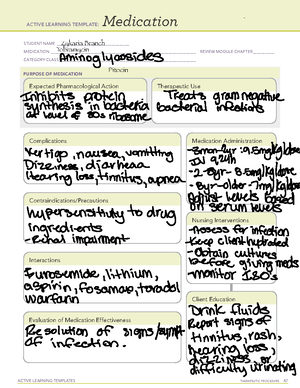 ACTIVE LEARNING TEMPLATE: Medication
STUDENT NAME Zakaria Branch
MEDICATION Tobramycin REVIEW MODULE CHAPTER
CATEGORY CLASS Aminoglycosides
Pitocin
PURPOSE OF MEDICATION
Expected Pharmacological Action
Inhibits protein
synthesis in bacteria
at level of 30s ribosome
Therapeutic Use
Treats gram negative
bacterial infections
Complications
Vertigo, nausea, vomitting
Dizziness, diarrhea
Hearing loss, tinnitus, apnea
Medication Administration
IV q24h
-2-8yr- 8.5mg/kg/dose
-8yr-older-7mg/kg/dose
Adjust levels based
on serum levels
Contraindications/Precautions
Hypersensitivity to drug
Ingredients
-Renal impairment
Nursing Interventions
-Assess for infection
-Keep client hydrated
-Obtain cultures
before giving meds
-monitor I&O's
Interactions
Furosemide, lithium,
aspirin, Fosamax, toradol
warfarin
Client Education
Drink fluids
Report signs of
tinnitus, rash,
hearing loss,
dizziness, or
difficulty urinating
Evaluation of Medication Effectiveness
Resolution of signs/sympt.
of infection.
ACTIVE LEARNING TEMPLATES
THERAPEUTIC PROCEDURE A7